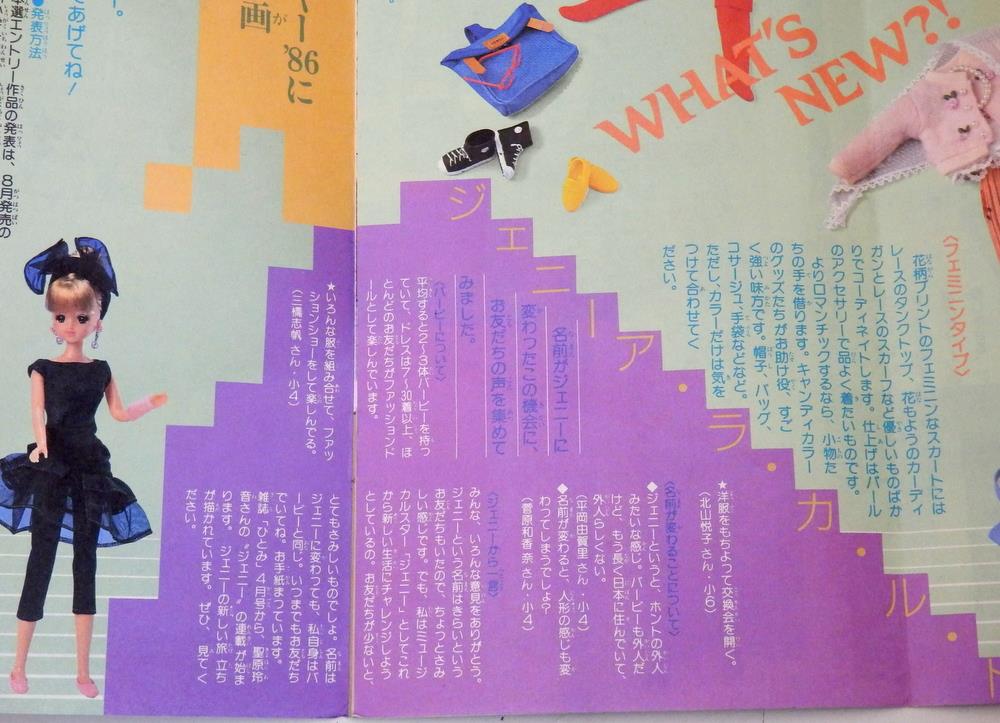 WHAT'S
NEW?!
〈フェミニンタイプ〉
花柄プリントのフェミニンなスカートには
レースのタンクトップ、花もようのカーディ
ガンとレースのスカーフなど優しいものばか
りでコーディネイトします。仕上げはパール
のアクセサリーで品よく着たいものです。
よりロマンチックするなら、小物た
ちの手を借ります。キャンディカラー
のグッズたちがお助け役、すご
く強い味方です。帽子、バッグ、
コサージュ、手袋などなど。
ただし、カラーだけは気を
つけて合わせてく
ださい。
ジェニーア・ラ・カ・ル・ト
名前がジェニーに
変わったこの機会に、
お友だちの声を集めて
みました。
〈バービーについて〉
平均すると2〜3体バービーを持っ
ていて、ドレスは7〜30着以上、ほ
とんどのお友だちがファッションド
ールとして楽しんでいます。
★いろんな服を組み合せて、ファッ
ションショーをして楽しんでる。
(三橋志帆 さん・小4)
★洋服をもちよって交換会を開く。
(北山悦子 さん・小6)
〈名前が変わることについて〉
◆ジェニーというと、ホントの外人
みたいな感じ。バービーも外人だ
けど、もう長く日本に住んでいて、
外人らしくない。
(平岡由賀里 さん・小4)
◆名前が変わると、人形の感じも変
わってしまうでしょ?
(菅原和香奈 さん・小4)
〈ジェニーから一言〉
みんな、いろんな意見をありがとう。
ジェニーという名前はきらいという
お友だちもいたので、ちょっとさみ
しい感じです。でも、私はミュージ
カルスター「ジェニー」としてこれ
から新しい生活にチャレンジしよう
としているの。お友だちが少ないと、
とてもさみしいものでしょ。名前は
ジェニーに変わっても、私自身はバ
ービーと同じ。いつまでもお友だち
でいてね。お手紙まっています。
雑誌「ひとみ」4月号から、聖原玲
音さんの〝ジェニー〟の連載が始ま
ります。ジェニーの新しい旅立ち
が描かれています。ぜひ、見てく
ださい。
ー'86に
画
てあげてね!
●発表方法
本選エントリー作品の発表は、8月発売の